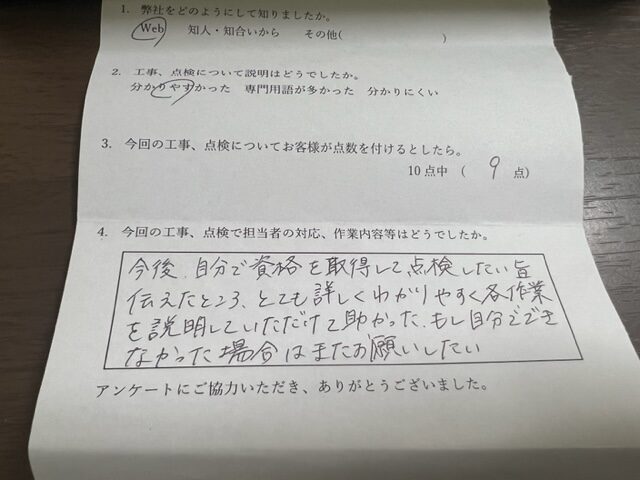 1. 弊社をどのようにして知りましたか。
Web 知人・知合いから その他( )
2. 工事、点検について説明はどうでしたか。
分かりやすかった 専門用語が多かった 分かりにくい
3. 今回の工事、点検についてお客様が点数を付けるとしたら。
10点中 ( 9 点)
4. 今回の工事、点検で担当者の対応、作業内容等はどうでしたか。
今後、自分で資格を取得して点検したい旨
伝えたところ、とても詳しくわかりやすく各作業
を説明していただけて助かった。もし自分ででき
なかった場合はまたお願いしたい
アンケートにご協力いただき、ありがとうございました。